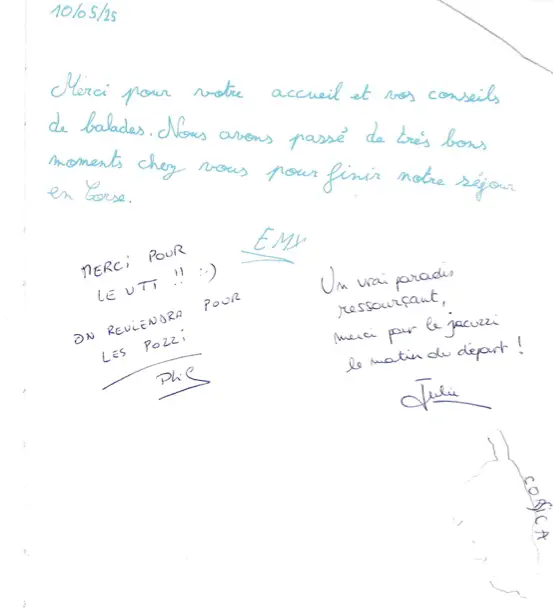 10/05/25
Merci pour votre accueil et vos conseils
de balades. Nous avons passé de très bons
moments chez vous pour finir notre séjour
en Corse.
EMY
MERCI POUR
LE VTT !! :-)
ON REVIENDRA POUR
LES POZZI
PHIL
Un vrai paradis
ressourçant,
merci pour le jacuzzi
le matin du départ !
Julie
CORSICA